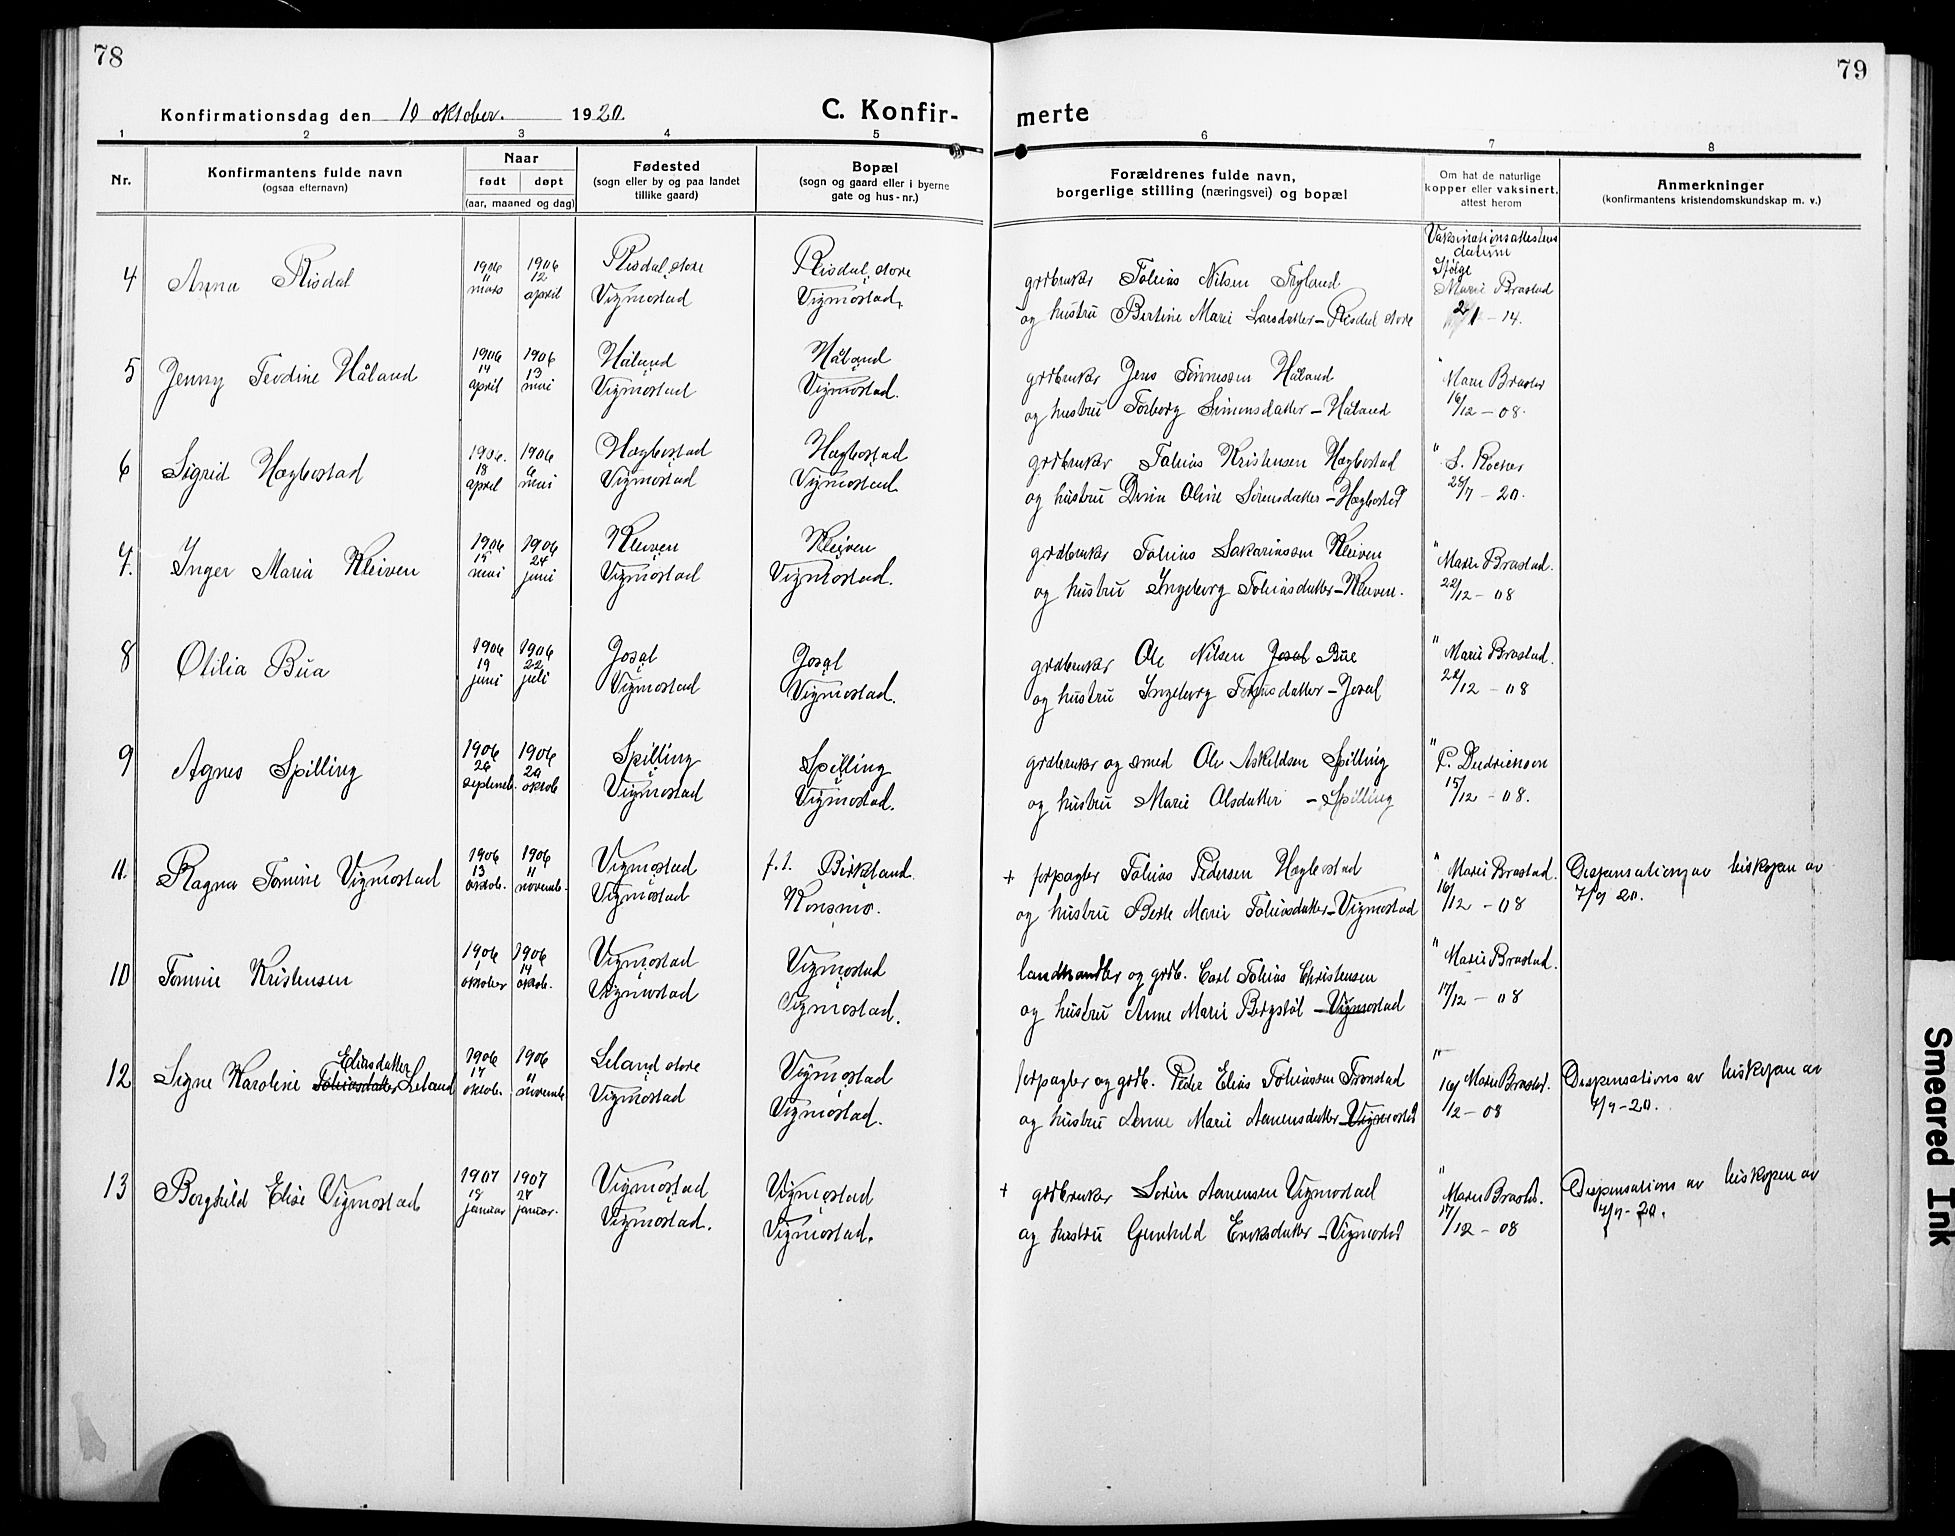 78
79
Konfirmationsdag den 10 oktober. 1920.
C. Konfir- merte
1 2 3 4 5 6 7 8
Nr.
Konfirmantens fulde navn
(ogsaa efternavn)
Naar
født døpt
(aar, maaned og dag)
Fødested
(sogn eller by og paa landet
tillike gaard)
Bopæl
(sogn og gaard eller i byerne
gate og hus-nr.)
Forældrenes fulde navn,
borgerlige stilling (næringsvei) og bopæl
Om hat de naturlige
kopper eller vaksinert,
attest herom
Anmerkninger
(konfirmantens kristendomskundskap m. v.)
Vaksinationsattestens
datum
Ifølge
4 Anna Risdal
1906 11 mars
1906 12 april
Risdal, store
Vigmostad
Risdal, store
Vigmostad,
grdbruker Tobias Nilsen
og hustru Bertine Marie Larsdatter - Risdal store
Marie Brastad
1 - 14.
5 Jenny Teodine Håland
1906 14 april
1906 13 mai
Håland
Vigmostad
Håland
Vigmostad.
grdbruker Jens Tønnessen Håland
og hustru Torborg Simonsdatter - Håland
" Marie Brastad
16/12 - 08.
6 Sigrid Hægbostad
1906. 18 april
1906 6 mai
Hægbostad
Vigmostad
Hægbostad
Vigmostad
grdbruker Tobias Kristensen Hægbostad
og hustru Oline Sørensdatter - Hægbostad
" S.
/7 - 20.
7. Inger Maria Kleiven
1906 15 mai
1906 24 juni
Kleiven
Vigmostad
Kleiven
Vigmostad.
grdbruker Tobias Sakariassen Kleiven
og hustru Ingeborg Tobiasdatter - Kleiven.
" Marie Brastad.
22/12 - 08
8 Otilia Bua
1906 19 juni
1906 22 juli
Josal
Vigmostad
Josal
Vigmostad.
grdbruker Ole Nilsen Josal Bue
og hustru Ingeborg - Josal
" Marie Brastad.
22/12 - 08
9 Agnes Spilling
1906 26 septemb.
1906 20 oktob
Spilling
Vigmostad
Spilling
Vigmostad.
grdbruker og smed Ole Askildsen Spilling
og hustru Marie Olsdatter - Spilling
" P. Diedrichsen
15/12 - 08.
11. Ragna Tomine Vigmostad
1906 13 oktob.
1906 11 novemb.
Vigmostad
Vigmostad
f. t. Birkeland.
Konsmo.
+ forpagter Tobias Pedersen Hægbostad
og hustru Berte Marie Tobiasdatter - Vigmostad
" Marie Brastad.
16/12 - 08
Dispensation av biskopen av
7/9 20.
10 Tomine Kristensen
1906 1 oktober
1906 14 oktob.
Vigmostad
Vigmostad
Vigmostad
Vigmostad.
landhandler og grdb. Carl Tobias Christensen
og hustru Anne Marie Bergstøl - Vigmostad
" Marie Brastad.
17/12 - 08
12 Signe Karoline Tobiasdatter Eliasdatter Leland
1906 17 oktob.
1906 11 novemb
Leland store
Vigmostad
Vigmostad
Vigmostad.
forpagter og grdb. Peder Elias Tobiassen Tronstad
og hustru Anne Marie Aanensdatter - Vigmostad
" Marie Brastad.
16/12 - 08
Dispensations av biskopen av
7/9 - 20.
13 Borghild Elise Vigmostad
1907 18 januar
1907 27 januar.
Vigmostad
Vigmostad.
Vigmostad
Vigmostad.
+ grdbruker Sørin Aanensen Vigmostad
og hustru Gunhild Eriksdatter - Vigmostad
" Marie Brastad.
17/12 - 08
Dispensations av biskopen av
7/9 - 20.
Smeared Ink